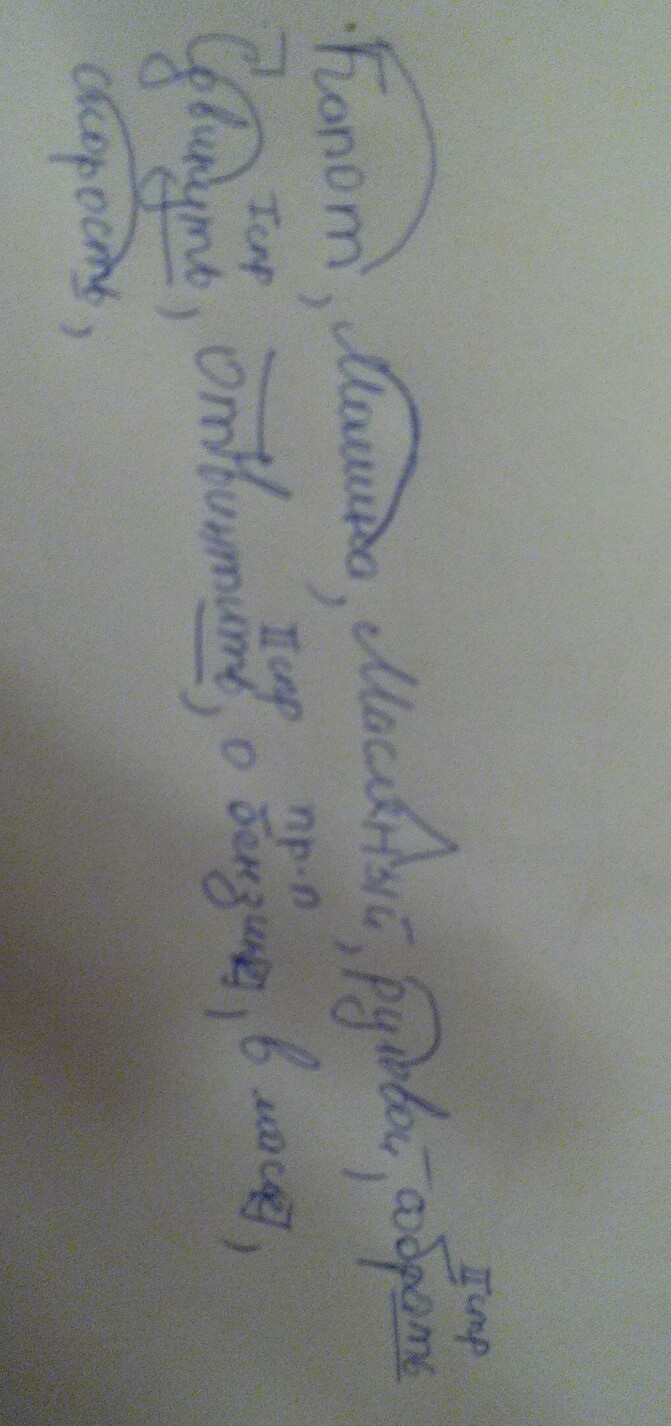 II спр
Капот, Машина, Масляный, рулевой, собрать
I спр II спр пр.п
Сдвинуть, Отвинтить, о бензине, в масле,
скорость,